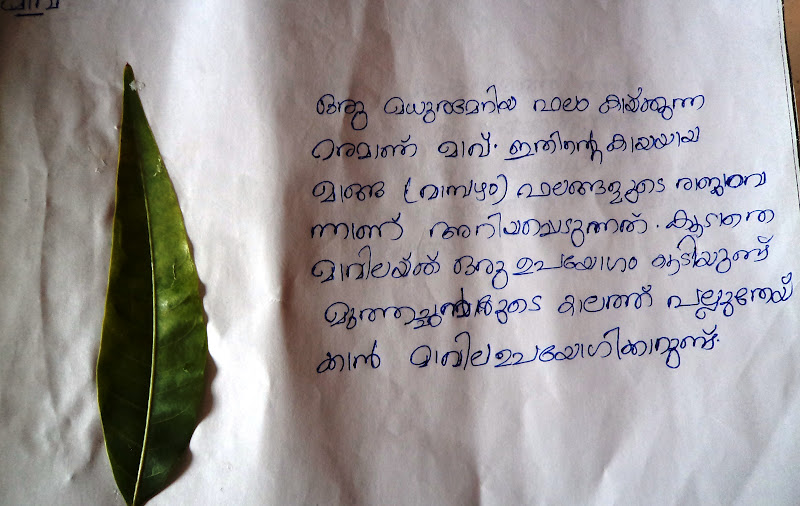 മാവ്
ഒരു മധുരമൂറിയ ഫലം കായ്ക്കുന്ന
മരമാണ് മാവ്. ഇതിന്റെ കായയായ
മാങ്ങ (മാമ്പഴം) ഫലങ്ങളുടെ രാജാവെ
ന്നാണ് അറിയപ്പെടുന്നത്. കൂടാതെ
മാവിലയ്ക്ക് ഒരു ഉപയോഗം കൂടിയുണ്ട്
മുത്തച്ഛന്മാരുടെ കാലത്ത് പല്ലുതേയ്
ക്കാൻ മാവില ഉപയോഗിക്കാറുണ്ട്.